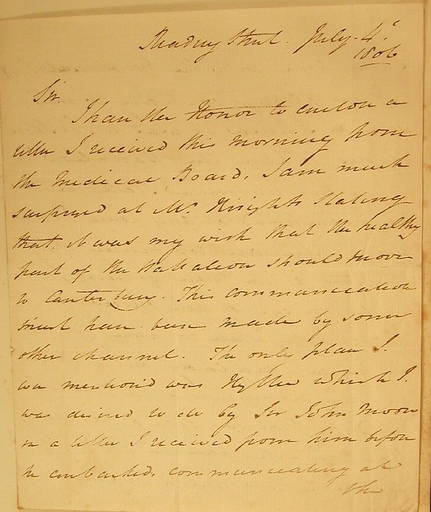 Reading Street. July. 4th
1806
Sir
I have the Honor to enclose a
letter I received this morning from
the Medical Board, I am much
surprised at Mr. Knights stating
that, it was my wish that the healthy
part of the Battalion should move
to Canterbury. This communication
must have been made by some
other channel. The only place I
ever mentioned was Hythe which I
was desired to do by Sir John Moore
in a letter I received from him before
he embarked, communicating at
the